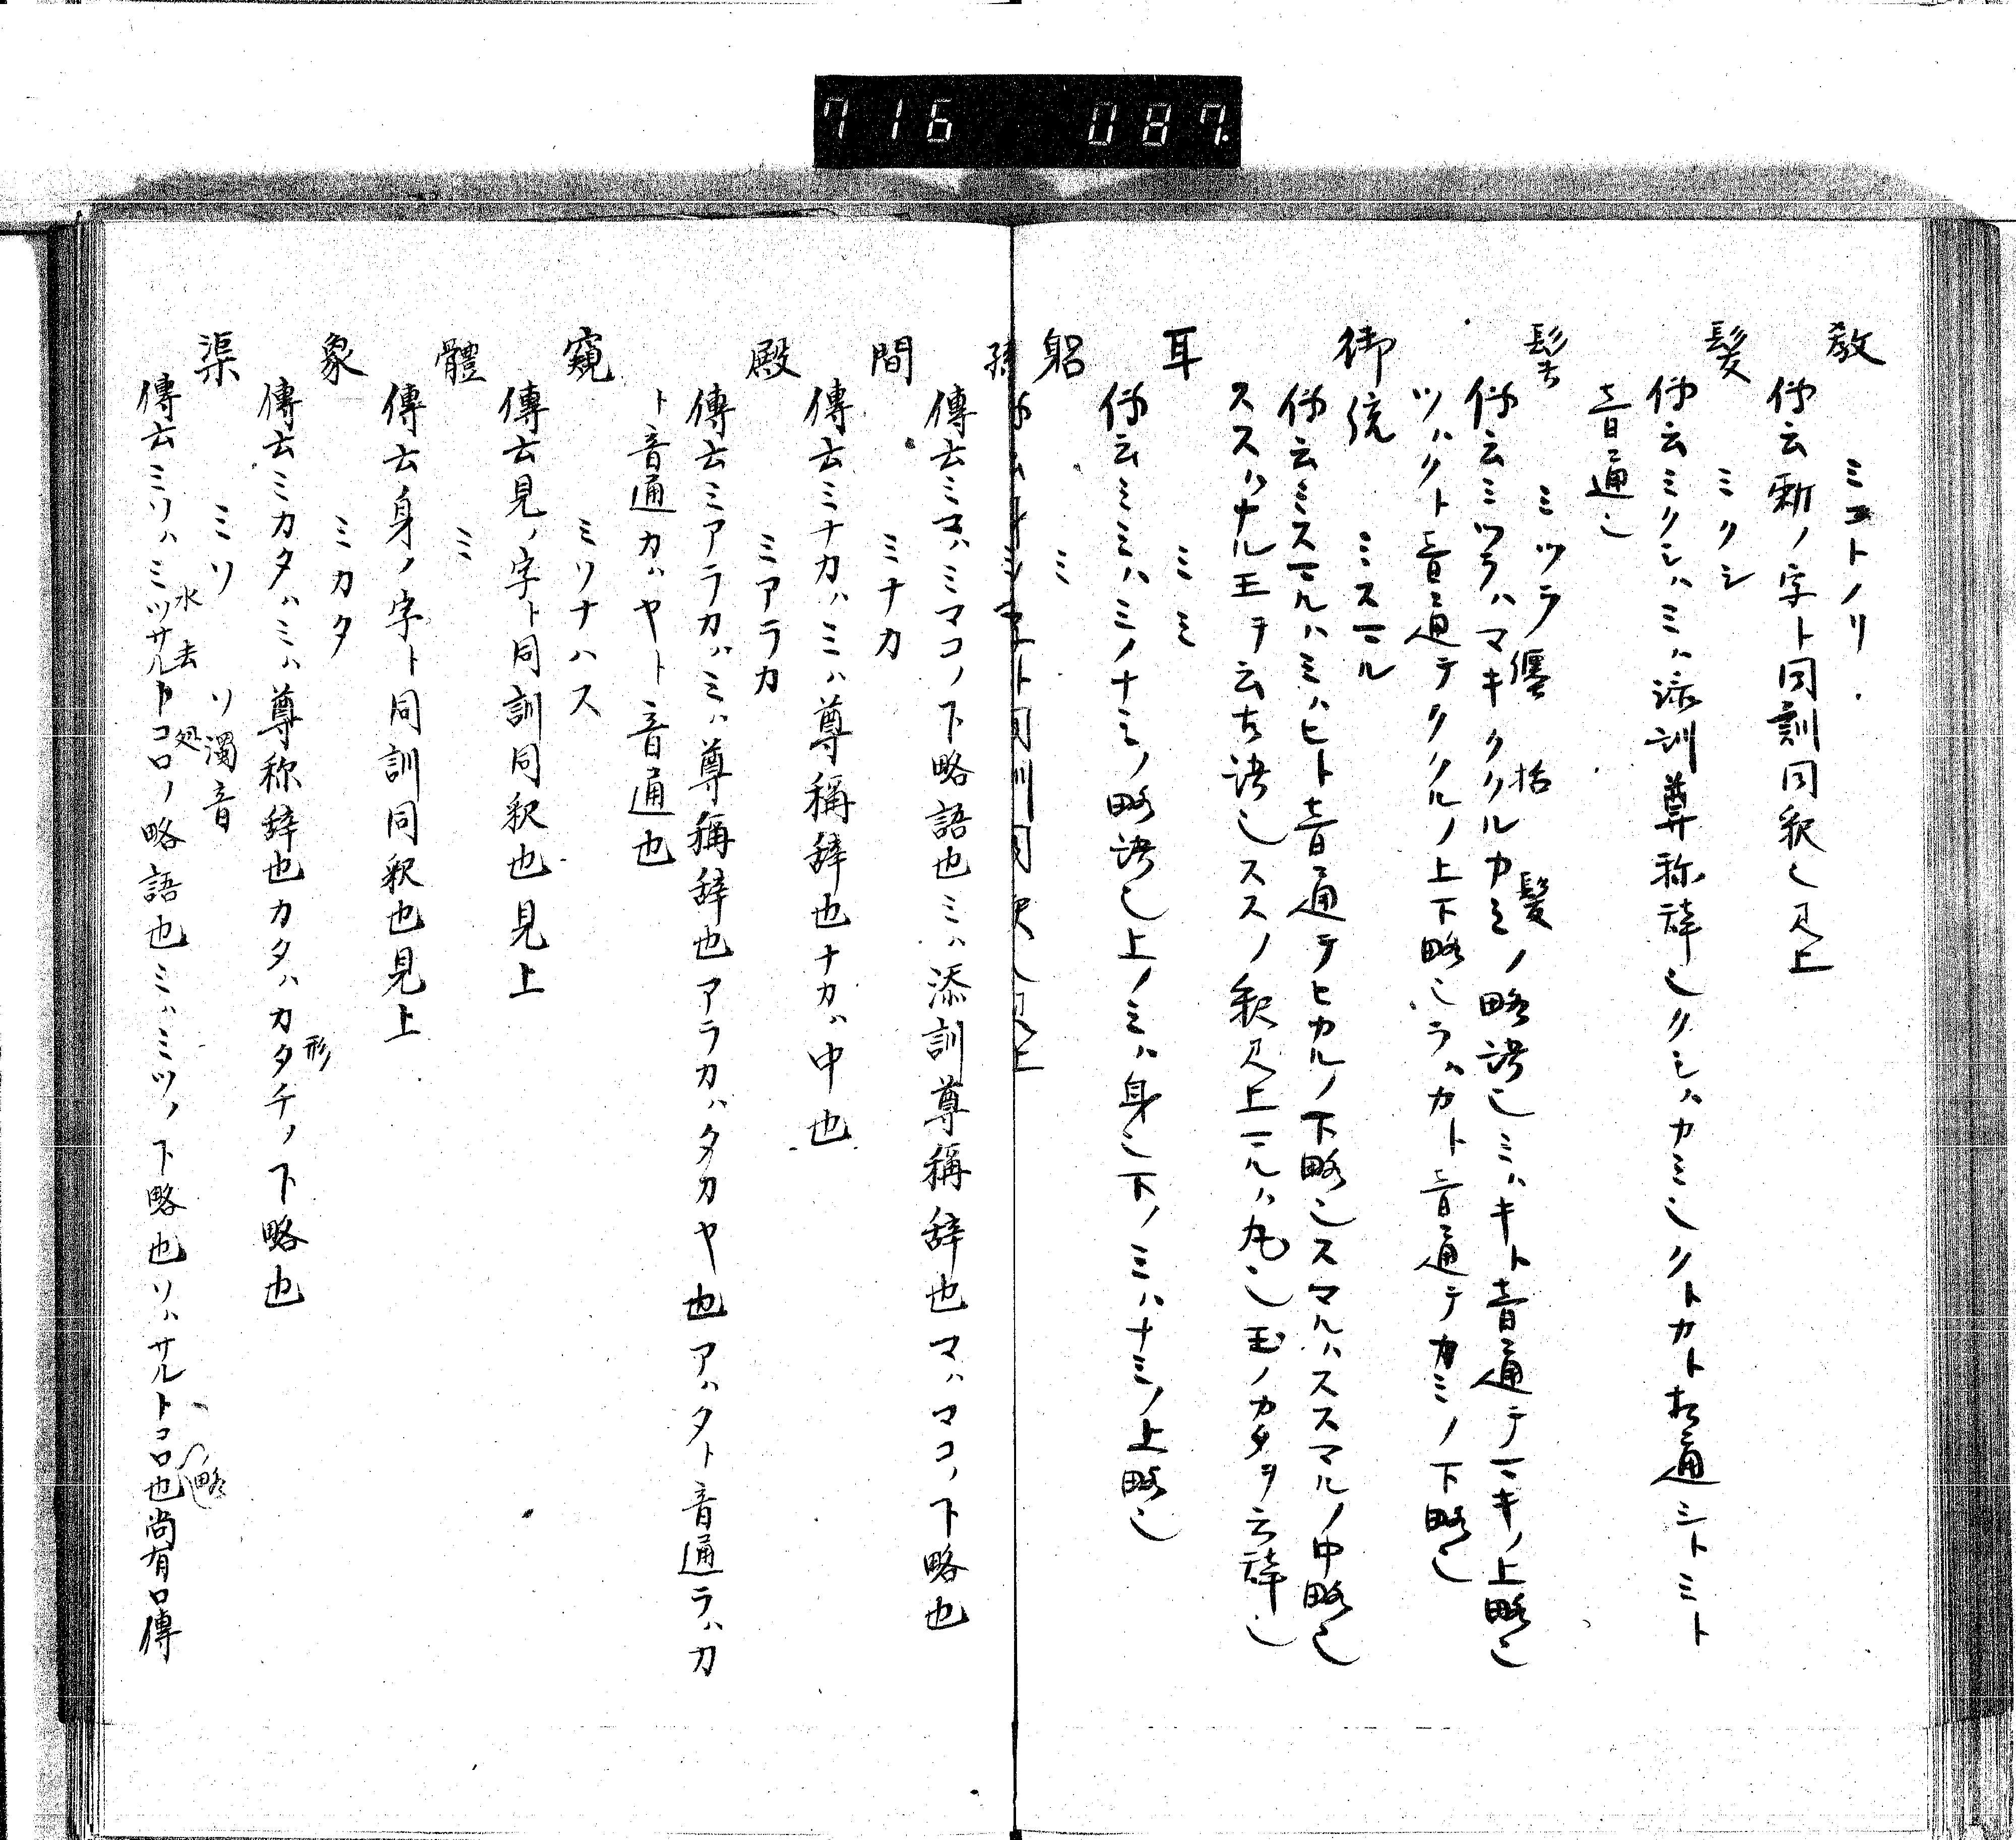 716 087
教 ミコトノリ
伝云勅ノ字ト同訓同釈也見上
髪 ミクシ
伝云ミクシハミハ添訓尊称辞也クシハカミ也クトカト相通ミトミト
音通也
髻 ミツラ 纏 括 髪
伝云ミツラハマキククルカミノ略語也ミハキト音通テマキノ上略也
ツハクト音通テククルノ上下略也ラハカト音通テカミノ下略也
御統 ミスマル
伝云ミスマルハミハヒト音通テヒカルノ下略也スマルハススマルノ中略也
ススハナル玉ヲ云古語也ススノ釈見上マルハ丸也玉ノカタヲ云辞也
耳 ミミ
伝云ミミハミノナミノ略語也上ノミハ身也下ノミハナミノ上略也
躬 ミ
孫 ミマ
傳云ミマハミマコノ下略語也ミハ添訓尊稱辞也マハマコノ下略也
間 ミナカ
傳云ミナカハミハ尊稱辞也ナカハ中也
殿 ミアラカ
傳云ミアラカハミハ尊稱辞也アラカハタカヤ也アハタト音通ラハカ
ト音通カハヤト音通也
窺 ミソナハス
傳云見ノ字ト同訓同釈也見上
體 ミ
傳云身ノ字ト同訓同釈也見上
象 ミカタ
傳云ミカタハミハ尊称辞也カタハカタチノ下略也
形
渠 ミソ ソ濁音
水去 処
傳云ミソハミツサルトコロノ略語也ミハミツノ下略也ソハサルトコロ也尚有口傳
ノ略